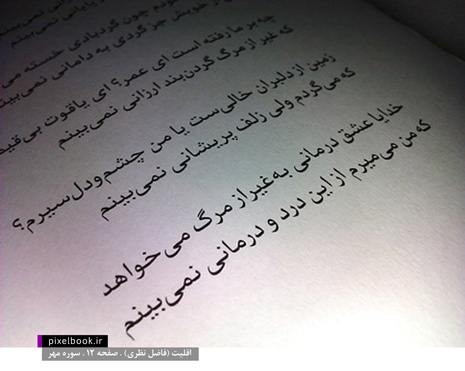 نمی‌بینم
چون گردبادی خسته می
از خویش جز گردی به دامانی نمی‌بینم
چه بر ما رفته است ای عمر؟ ای یاقوت بی‌قیم
که غیر از مرگ گردن‌بند ارزانی نمی‌بینم
زمین از دلبران خالی‌ست یا من چشم‌ودل‌سیرم؟
که می‌گردم ولی زلف پریشانی نمی‌بینم
خدایا عشق درمانی به‌غیر از مرگ می‌خواهد
که من می‌میرم از این درد و درمانی نمی‌بینم
pixelbook.ir
اقلیت (فاضل نظری) . صفحه ۱۲ . سوره مهر